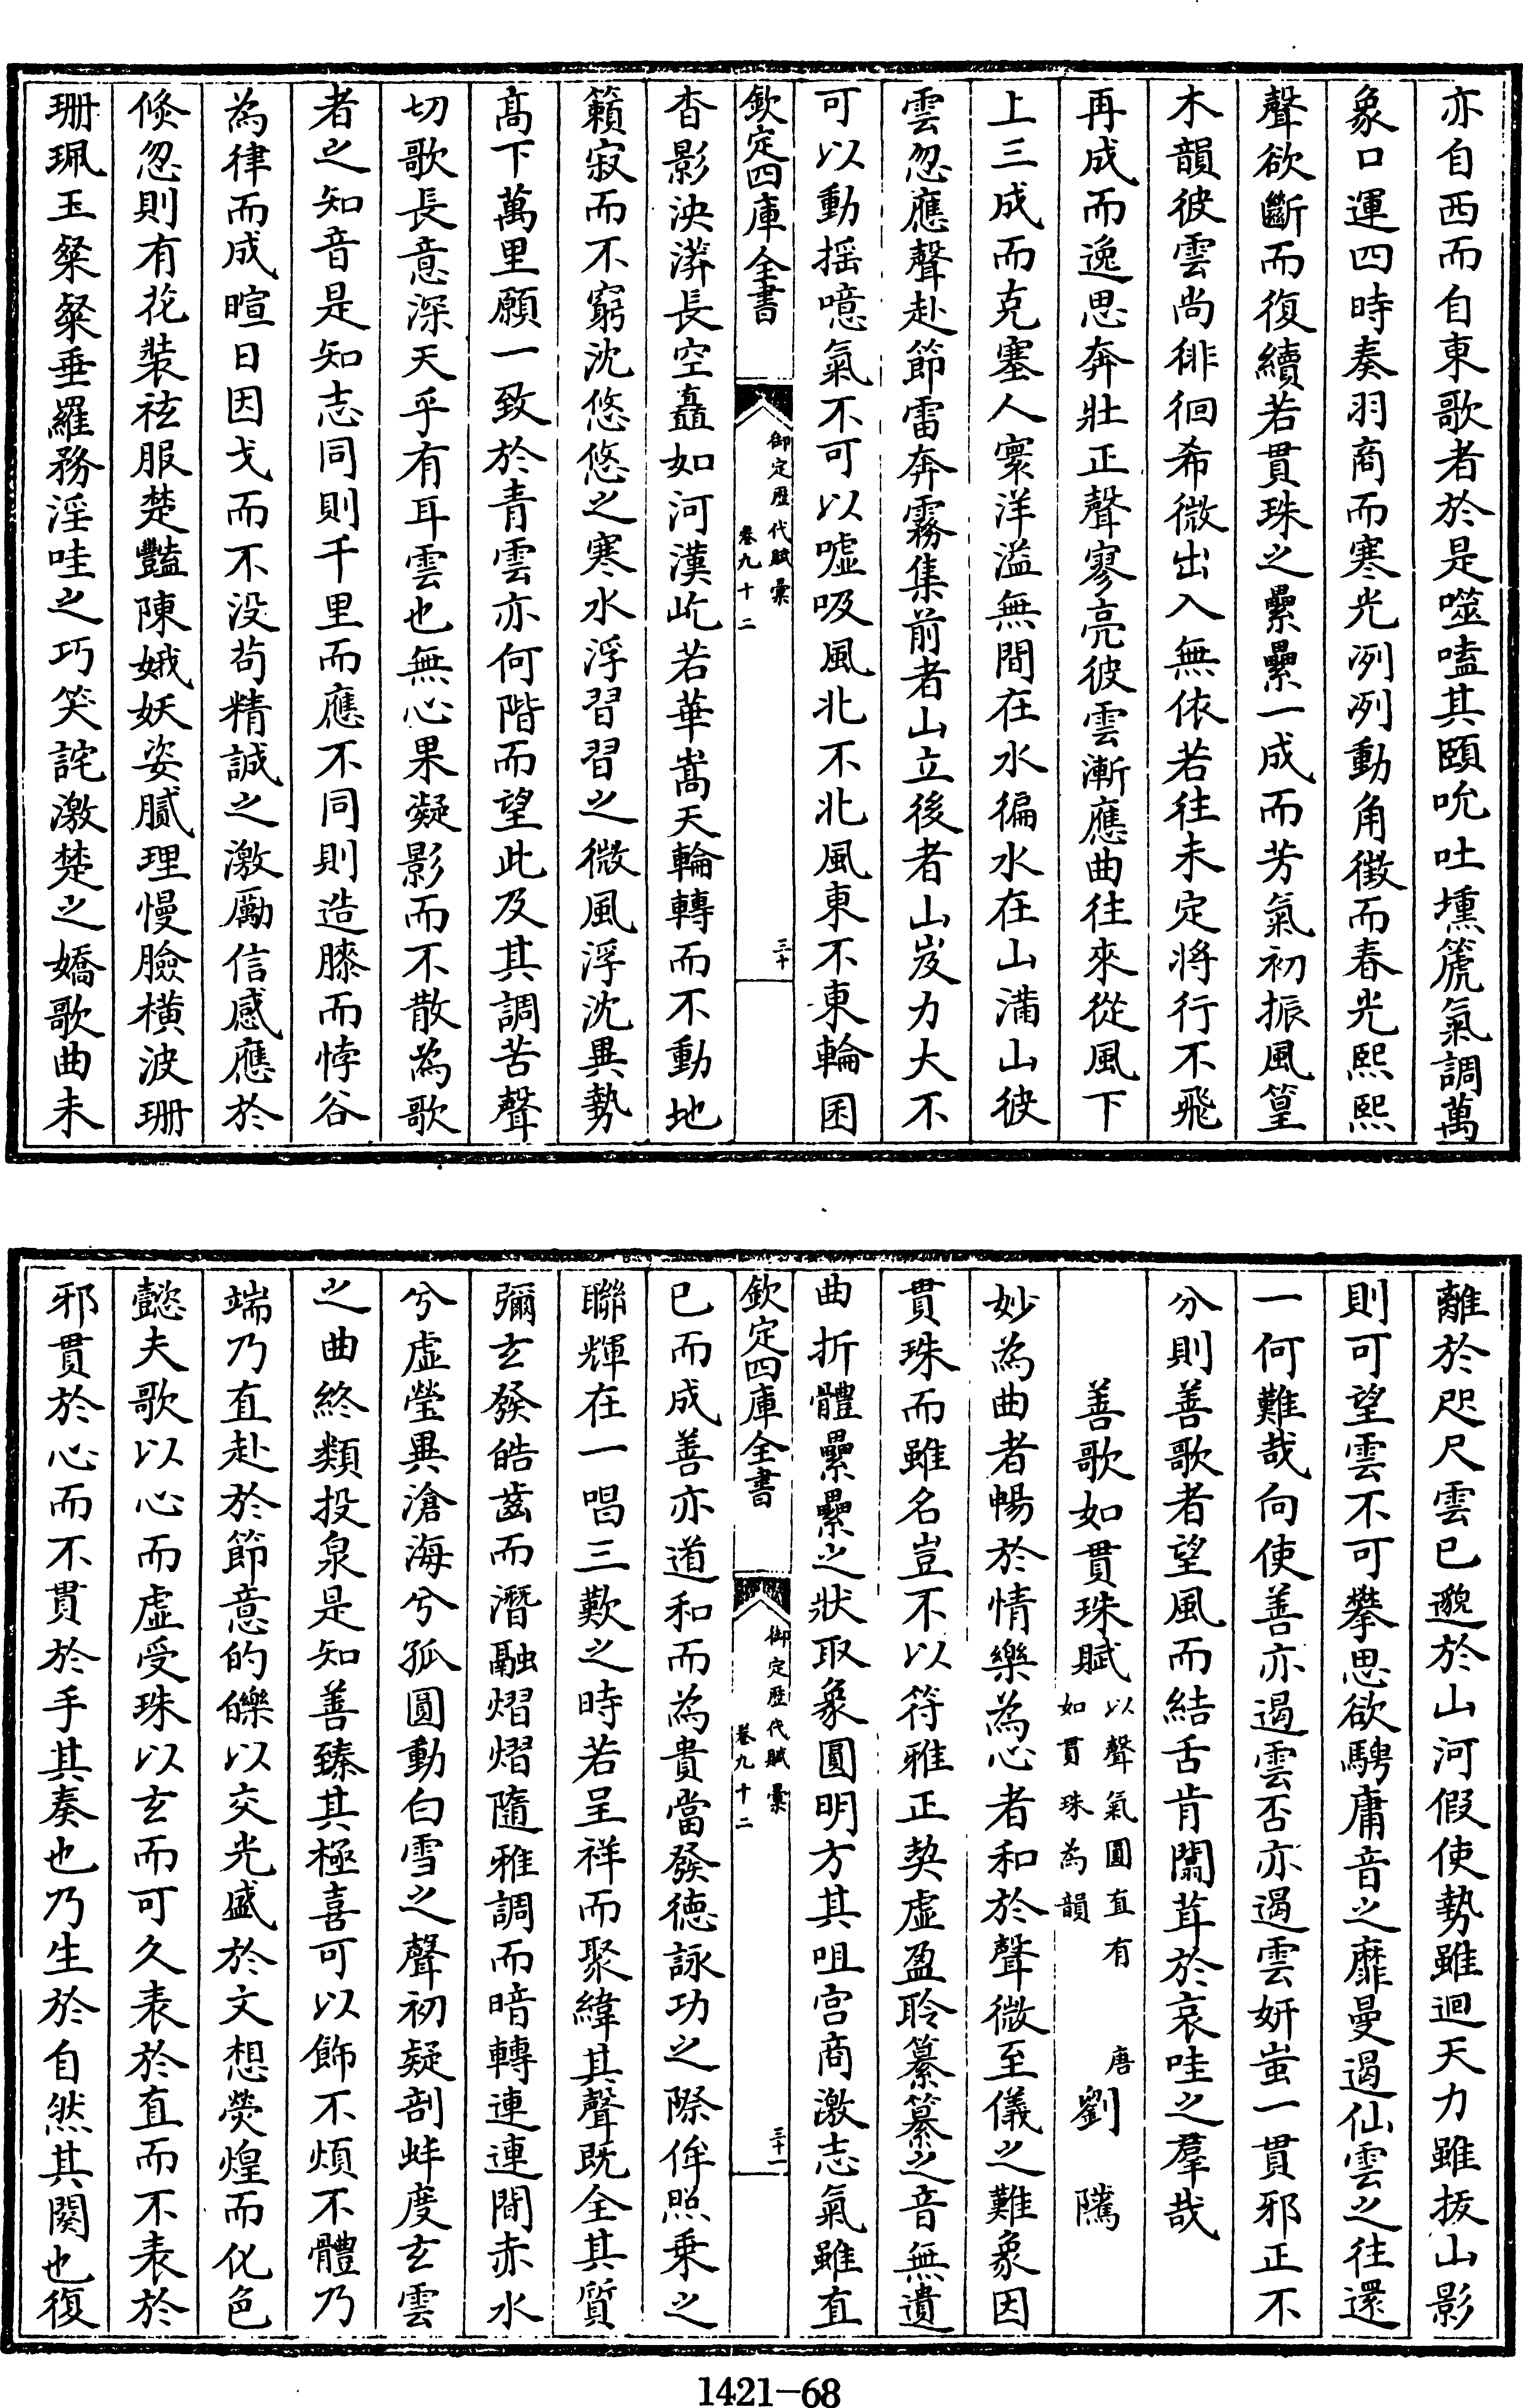 亦自西而自東歌者於是噬嗑其頤吮吐壎箎氣調萬
象口運四時奏羽商而寒光冽冽動角徵而春光熙熙
聲欲斷而復續若貫珠之纍纍一成而芳氣初振風篁
木韻彼雲尚徘徊希微出入無依若往未定將行不飛
再成而逸思奔壯正聲寥亮彼雲漸應曲往來從風下
上三成而克塞人寰洋溢無間在水徧水在山滿山彼
雲忽應聲赴節雷奔霧集前者山立後者山岌力大不
可以動搖噫氣不可以嘘吸風北不北風東不東輪囷
欽定四庫全書
御定歴代賦彙
卷九十二
三十
杳影泱漭長空矗如河漢屹若華嵩天輪轉而不動地
籟寂而不窮沈悠悠之寒水浮習習之微風浮沈異勢
髙下萬里願一致於青雲亦何階而望此及其調苦聲
切歌長意深天乎有耳雲也無心果凝影而不散為歌
者之知音是知志同則千里而應不同則造膝而悖谷
為律而成暄日因戈而不没苟精誠之激勵信感應於
倐忽則有花裝袨服楚豔陳娥妖姿膩理慢臉横波珊
珊珮玉粲粲垂羅務淫哇之巧笑詫激楚之嬌歌曲未
離於咫尺雲已邈於山河假使勢雖迴天力雖拔山影
則可望雲不可攀思欲騁庸音之靡曼遏仙雲之往還
一何難哉向使善亦遏雲否亦遏雲妍蚩一貫邪正不
分則善歌者望風而結舌肯闒茸於哀哇之羣哉
善歌如貫珠賦以聲氣圓直有如貫珠為韻 唐劉隲
妙為曲者暢於情樂為心者和於聲微至儀之難象因
貫珠而雖名豈不以符雅正契虛盈聆纂纂之音無遺
曲折體纍纍之狀取象圓明方其咀宫商激志氣雖直
欽定四庫全書
御定歴代賦彙
卷九十二
三十一
已而成善亦道和而為貴當發徳詠功之際侔照乗之
聯輝在一唱三歎之時若呈祥而聚緯其聲既全其質
彌玄發皓齒而潛融熠熠隨雅調而暗轉連連間赤水
兮虛瑩異滄海兮孤圓動白雪之聲初疑剖蚌度玄雲
之曲終類投泉是知善臻其極喜可以飾不煩不體乃
端乃直赴於節意的皪以交光盛於文想熒煌而化色
懿夫歌以心而虛受珠以玄而可久表於直而不表於
邪貫於心而不貫於手其奏也乃生於自然其闋也復
1421—68